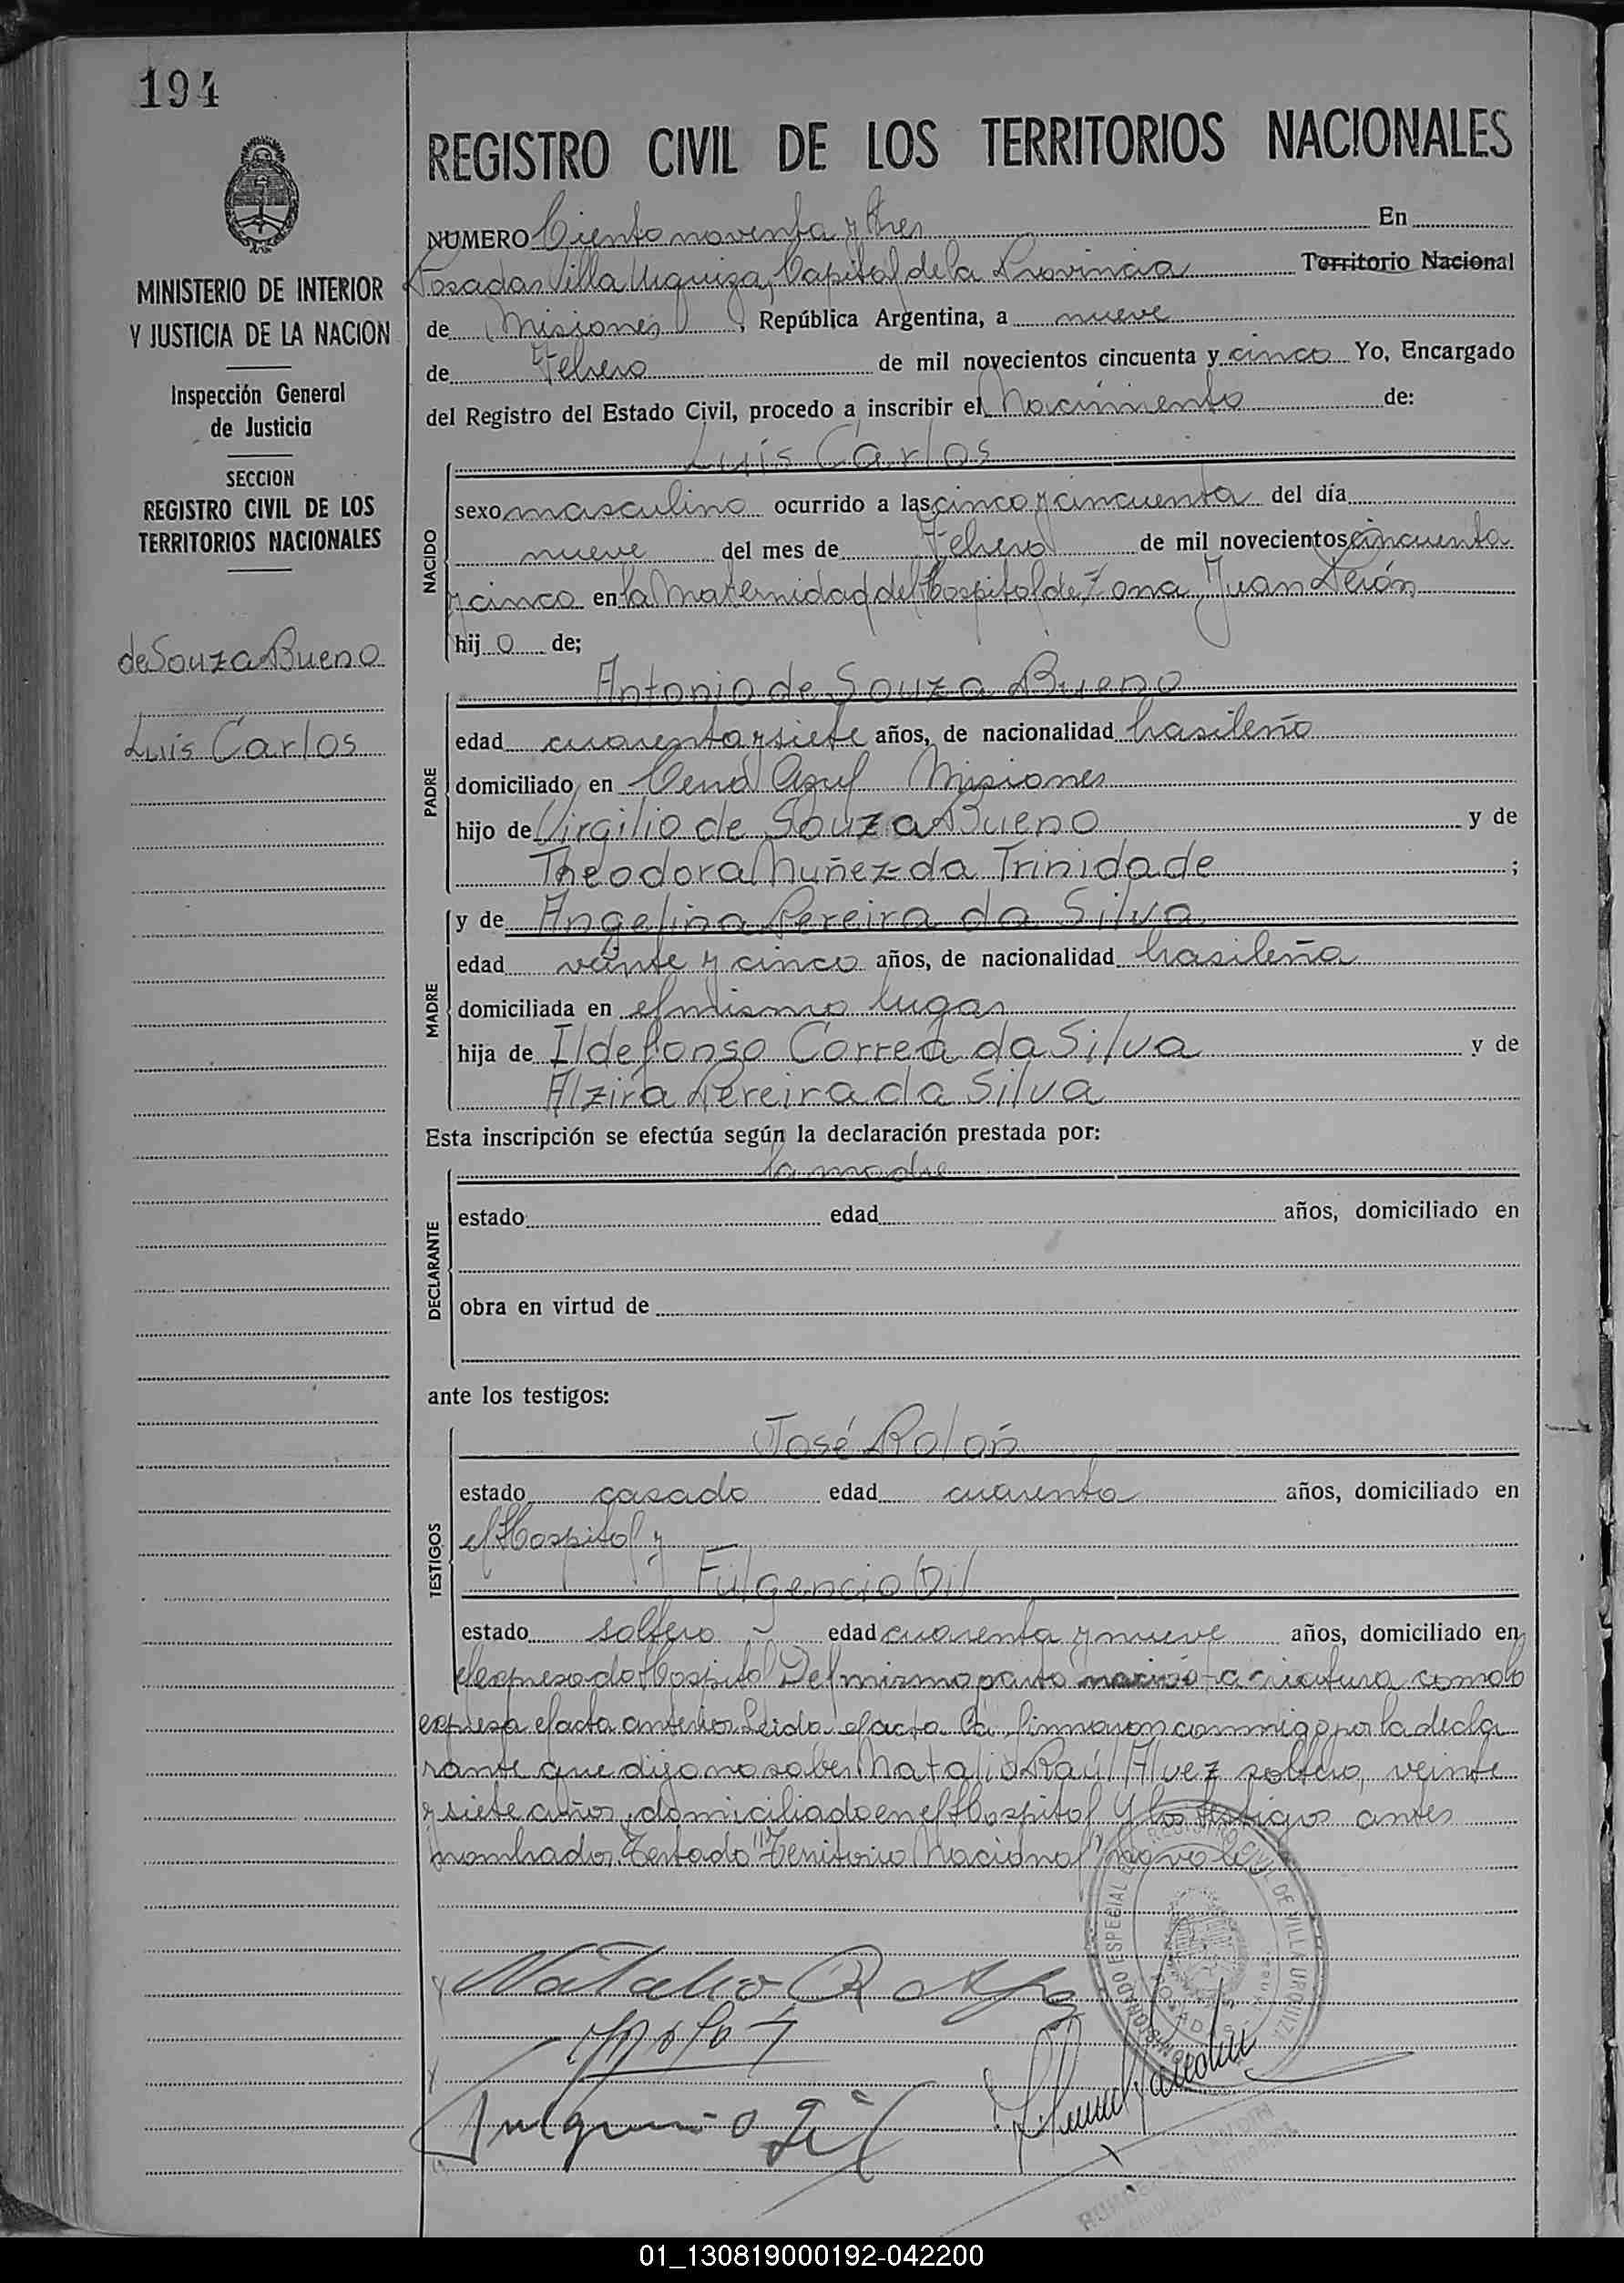 194
MINISTERIO DE INTERIOR
Y JUSTICIA DE LA NACION
Inspección General
de Justicia
SECCION
REGISTRO CIVIL DE LOS
TERRITORIOS NACIONALES
de Souza Bueno
Luis Carlos
REGISTRO CIVIL DE LOS TERRITORIOS NACIONALES
NUMERO Ciento noventa y tres En
Posadas Villa Urquiza, Capital de la Provincia Territorio Nacional
de Misiones, República Argentina, a nueve
de Febrero de mil novecientos cincuenta y cinco Yo, Encargado
del Registro del Estado Civil, procedo a inscribir el Nacimiento de:
NACIDO
Luis Carlos
sexo masculino ocurrido a las cinco y cincuenta del día
nueve del mes de Febrero de mil novecientos cincuenta
y cinco en la Maternidad del Hospital de Zona Juan Perón
hijo de;
PADRE
Antonio de Souza Bueno
edad cuarenta y siete años, de nacionalidad brasileño
domiciliado en Cerro Azul Misiones
hijo de Virgilio de Souza Bueno y de
Theodora Nuñez da Trinidade ;
MADRE
y de Angelina Pereira da Silva
edad veinte y cinco años, de nacionalidad brasileña
domiciliada en el mismo lugar
hija de Ildefonso Correa da Silva y de
Alzira Pereira da Silva
Esta inscripción se efectúa según la declaración prestada por:
DECLARANTE
la madre
estado edad años, domiciliado en
obra en virtud de
ante los testigos:
TESTIGOS
José Rolón
estado casado edad cuarenta años, domiciliado en
el Hospital y
Fulgencio Gil
estado soltero edad cuarenta y nueve años, domiciliado en
el expresado Hospital Del mismo parto nació la criatura como lo
expresa el acta anterior. Leida el acta la firmaron conmigo por la decla
rante que dijo no saber Natalio Raúl Alvez soltero, veinte
y siete años, domiciliado en el Hospital y los testigos antes
nombrados. Testado "Territorio Nacional" no vale
Natalio R
Fulgencio Gil
REGISTRO CIVIL DE VILLA URQUIZA
01_130819000192-042200